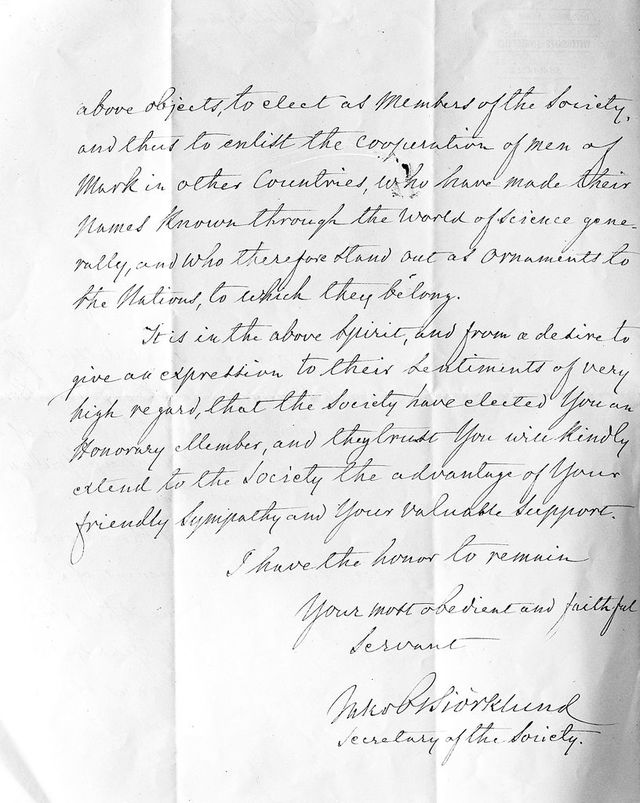 above objects, to elect as Members of the Society,
and thus to enlist the cooperation of men of
Mark in other Countries, who have made their
Names Known through the World of science gene-
rally, and who therefore stand out as Ornaments to
the Nations, to which they belong.
It is in the above Spirit, and from a desire to
give an expression to their Sentiments of very
high regard, that the Society have elected You an
Honorary Member, and they trust You will Kindly
extend to the Society the advantage of Your
friendly Sympathy and Your valuable Support.
I have the honor to remain
Your most obedient and faithful
Servant
Björklund
Secretary of the Society.